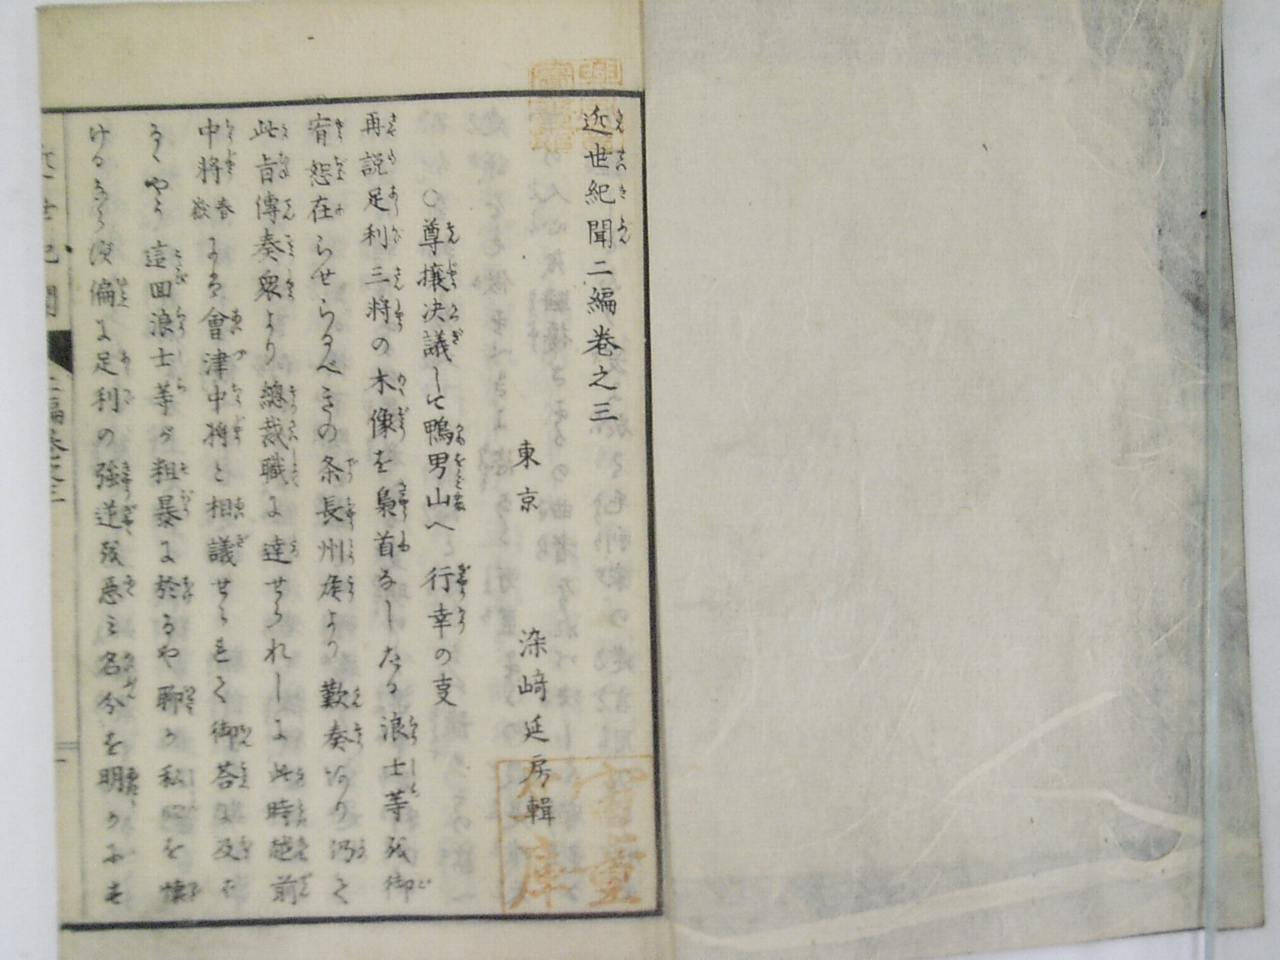 近世紀聞二編巻之三
東京 染﨑延房輯
○尊攘决議して鴨男山へ 行幸の支
再説足利三将の木像を梟首なしたる浪士等我御
宥怨在らせらるべきの条長州侯より歎奏ありなべて
此旨傳奏衆より總裁職に達せられしに此時越前
中将春嶽より會津中将と相議せられて御荅に及ば
るゝやう這回浪士等が粗暴に於るや聊か私心を懐
けるなら沒偏に足利の強逆残悪を名分を明かにせ
二編巻之三